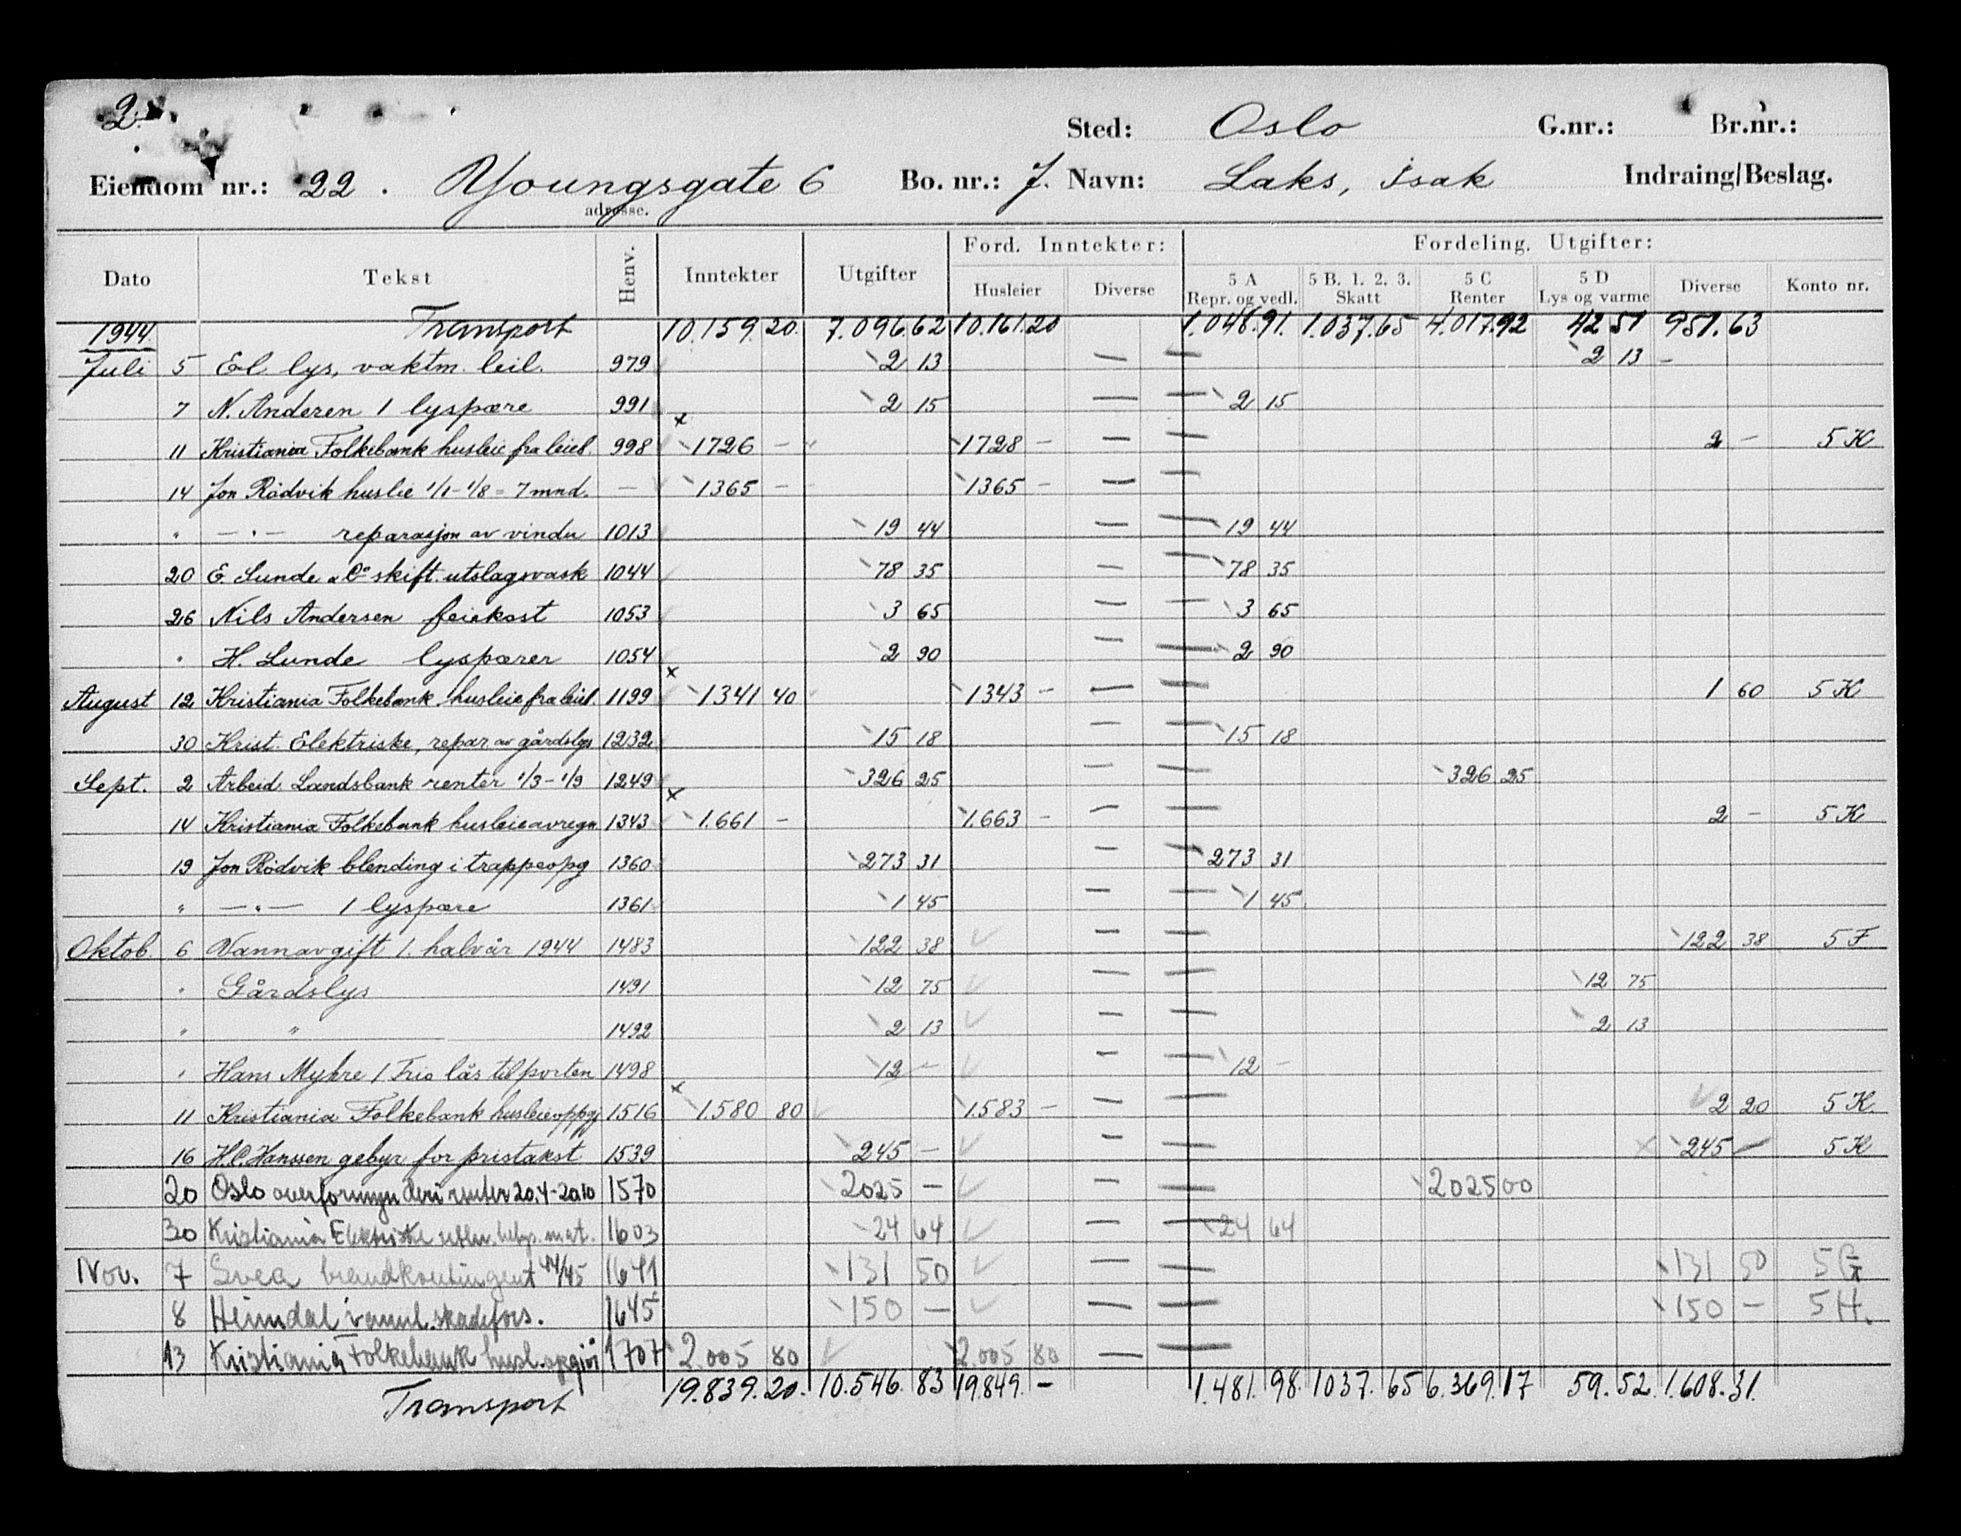 2.
Sted: Oslo G.nr.: Br.nr.:
Eiendom nr.: 22. Youngsgate 6 Bo. nr.: J. Navn: Laks, Isak Indraing/Beslag.
adresse.
Dato Tekst Henv. Inntekter Utgifter Ford. Inntekter: Fordeling. Utgifter:
Husleier Diverse 5 A Repr. og vedl. 5 B. 1. 2. 3. Skatt 5 C Renter 5 D Lys og varme Diverse Konto nr.
1944 Transport 10.159.20. 7.096.62 10.161.20 1.048.91. 1.037.65 4.017.92 42 51 951.63
Juli 5 El lys, vaktm. leil. 979 2 13 — — 2 13 -
7 N. Anderen 1 lyspære 991 2 15 — — 2 15
11 Kristiania Folkebank husleie fra leieb. 998 x 1726 - 1728 - — — 2 - 5 K
14 Jon Rödvik huslie 1/1-1/8 = 7 mnd. — 1365 - 1365 - — —
" — " — reparasjon av vindu 1013 19 44 — — 19 44
20 E Sunde & Co skift. utslagsvask 1044 78 35 — — 78 35
26 Nils Andersen feiekost 1053 3 65 — — 3 65
" H. Lunde lyspærer 1054 2 90 — — 2 90
August 12 Kristiania Folkebank husleie fra leieb. 1199 x 1341 40 1343 - — — 1 60 5 K
30 Krist. Elektriske, repar av gårdslys 1232 15 18 — — 15 18
Sept. 2 Arbeid. Landsbank renter 1/3-1/9 1249 326 25 — — 326 25
14 Kristiania Folkebank husleieavregn 1343 x 1.661 - 1.663 - — — 2 - 5 K
19 Jon Rödvik blending i trappeopg 1360 273 31 — — 273 31
" — " — 1 lyspære 1361 1 45 — — 1 45
Oktob. 6 Vannavgift 1. halvår 1944 1483 122 38 — — 122 38 5 F
" Gårdslys 1491 12 75 — — 12 75
" " 1492 2 13 — — 2 13
" Hans Myhre 1 Trio lås til porten 1498 12 - — — 12 -
11 Kristiania Folkebank husleieoppgj 1516 x 1.580 80 1.583 - — — 2 20 5 K.
16 H.C. Hanssen gebyr for pristakst 1539 245 - — — x 245 - 5 K
20 Oslo renter 20.4-20.10 1570 2025 - — — 2025 00
30 Kristiania Elektriske mat. 1603 24 64 — — 24 64
Nov. 7 Svea brandkontingent 44/45 1641 131 50 — — 131 50 5 G
8 Heimdal vannl.skadefors. 1645 150 — — — 150 — 5 H.
13 Kristiania Folkebank husl. 1707 2.005 80 2.005 80 — —
Transport 19.839.20. 10.546.83 19849. - 1.481.98. 1037.65 6.369.17 59.52. 1.608.31.